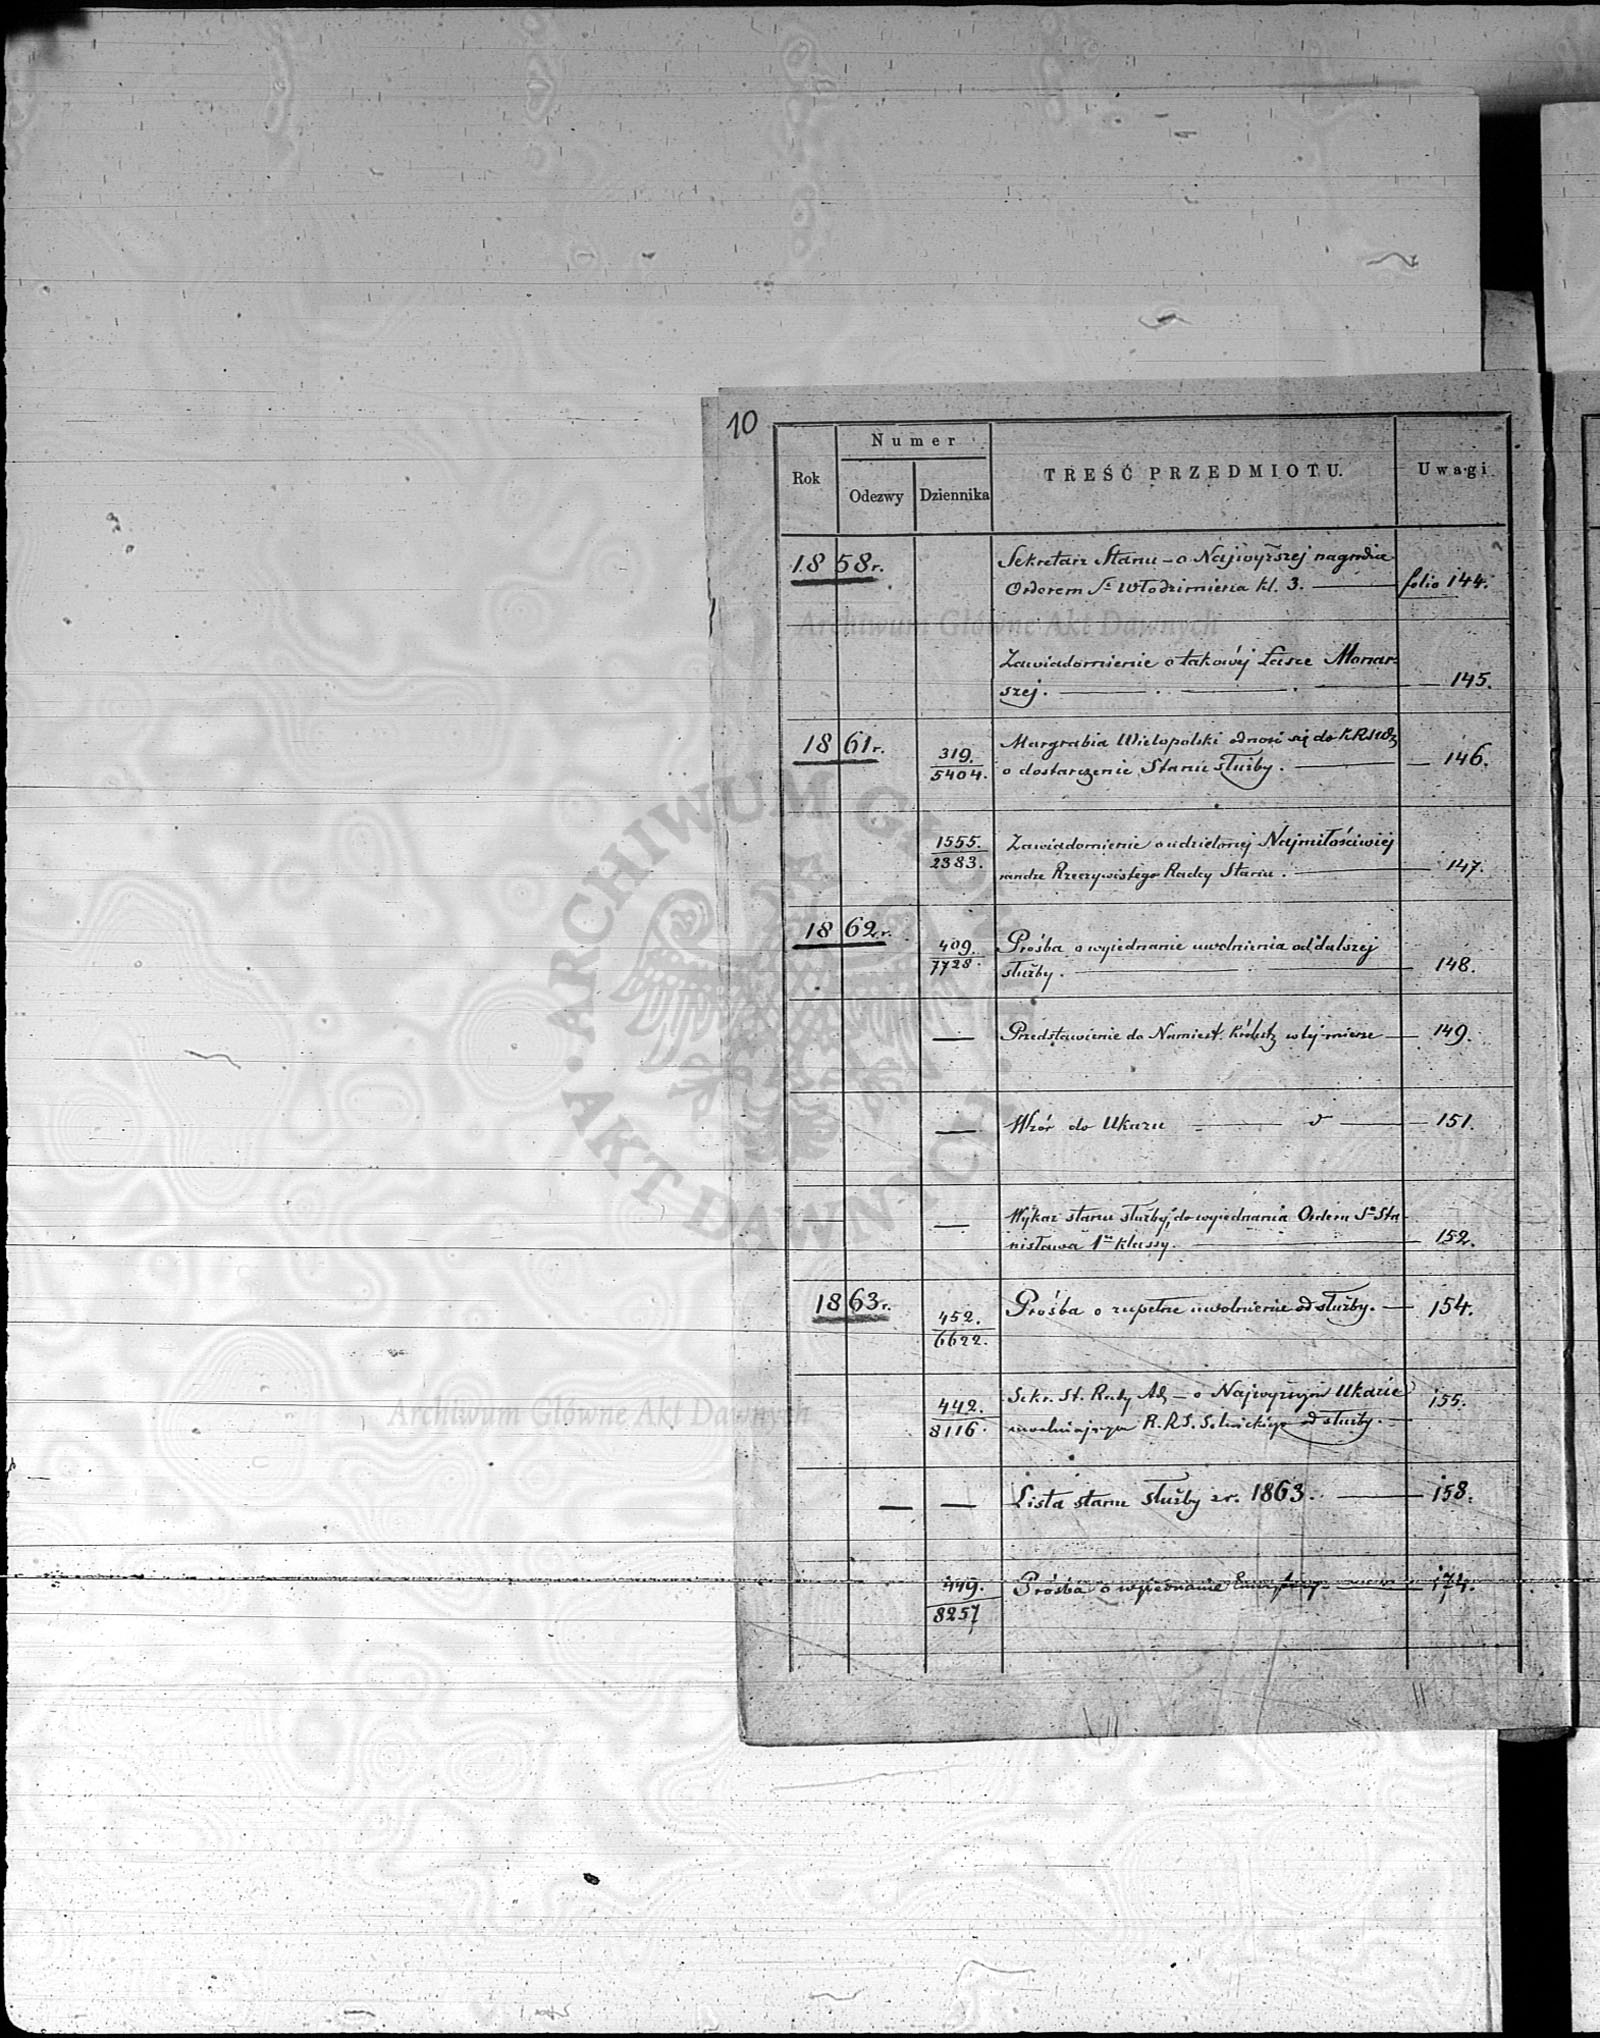 10
Numer
Rok
Odezwy
Dziennika
TREŚĆ PRZEDMIOTU.
Uwagi
1858r.
Sekretarz Stanu – o Najwyższej nagrodzie
Orderem Sgo Włodzimierza kl. 3. — folio 144.
Zawiadomienie o takowéj Łasce Monar-
szej. — 145.
1861r.
319.
5404.
Margrabia Wielopolski odnosi się do
o dostarczenie Stanu służby. — 146.
1555.
2383.
Zawiadomienie o udzielonej Najmiłościwiej
randze Rzeczywistego Radcy Stanu. — 147.
1862r.
409.
7728.
Prośba o wyjednanie uwolnienia od dalszej
służby. — 148.
— Przedstawienie do Namiest. Królestw. w tej mierze — 149.
— Wzór do Ukazu — 151.
— — Wykaz stanu służby, do wyjednania Orderu Sgo Sta-
nisława 1ej klassy. — 152.
1863r.
452.
6622.
Prośba o zupełne uwolnienie od służby. — 154.
442.
8116.
Sekr. St. Rady Ad. – o Najwyższym Ukazie
uwalniającym R. R. S. od służby. — 155.
— — Lista stanu służby z r. 1863. — 158.
449.
8257
Prośba o wyjednanie Emerytury — 174.
ARCHIWUM GŁÓWNE AKT DAWNYCH
Archiwum Główne Akt Dawnych
Archiwum Główne Akt Dawnych